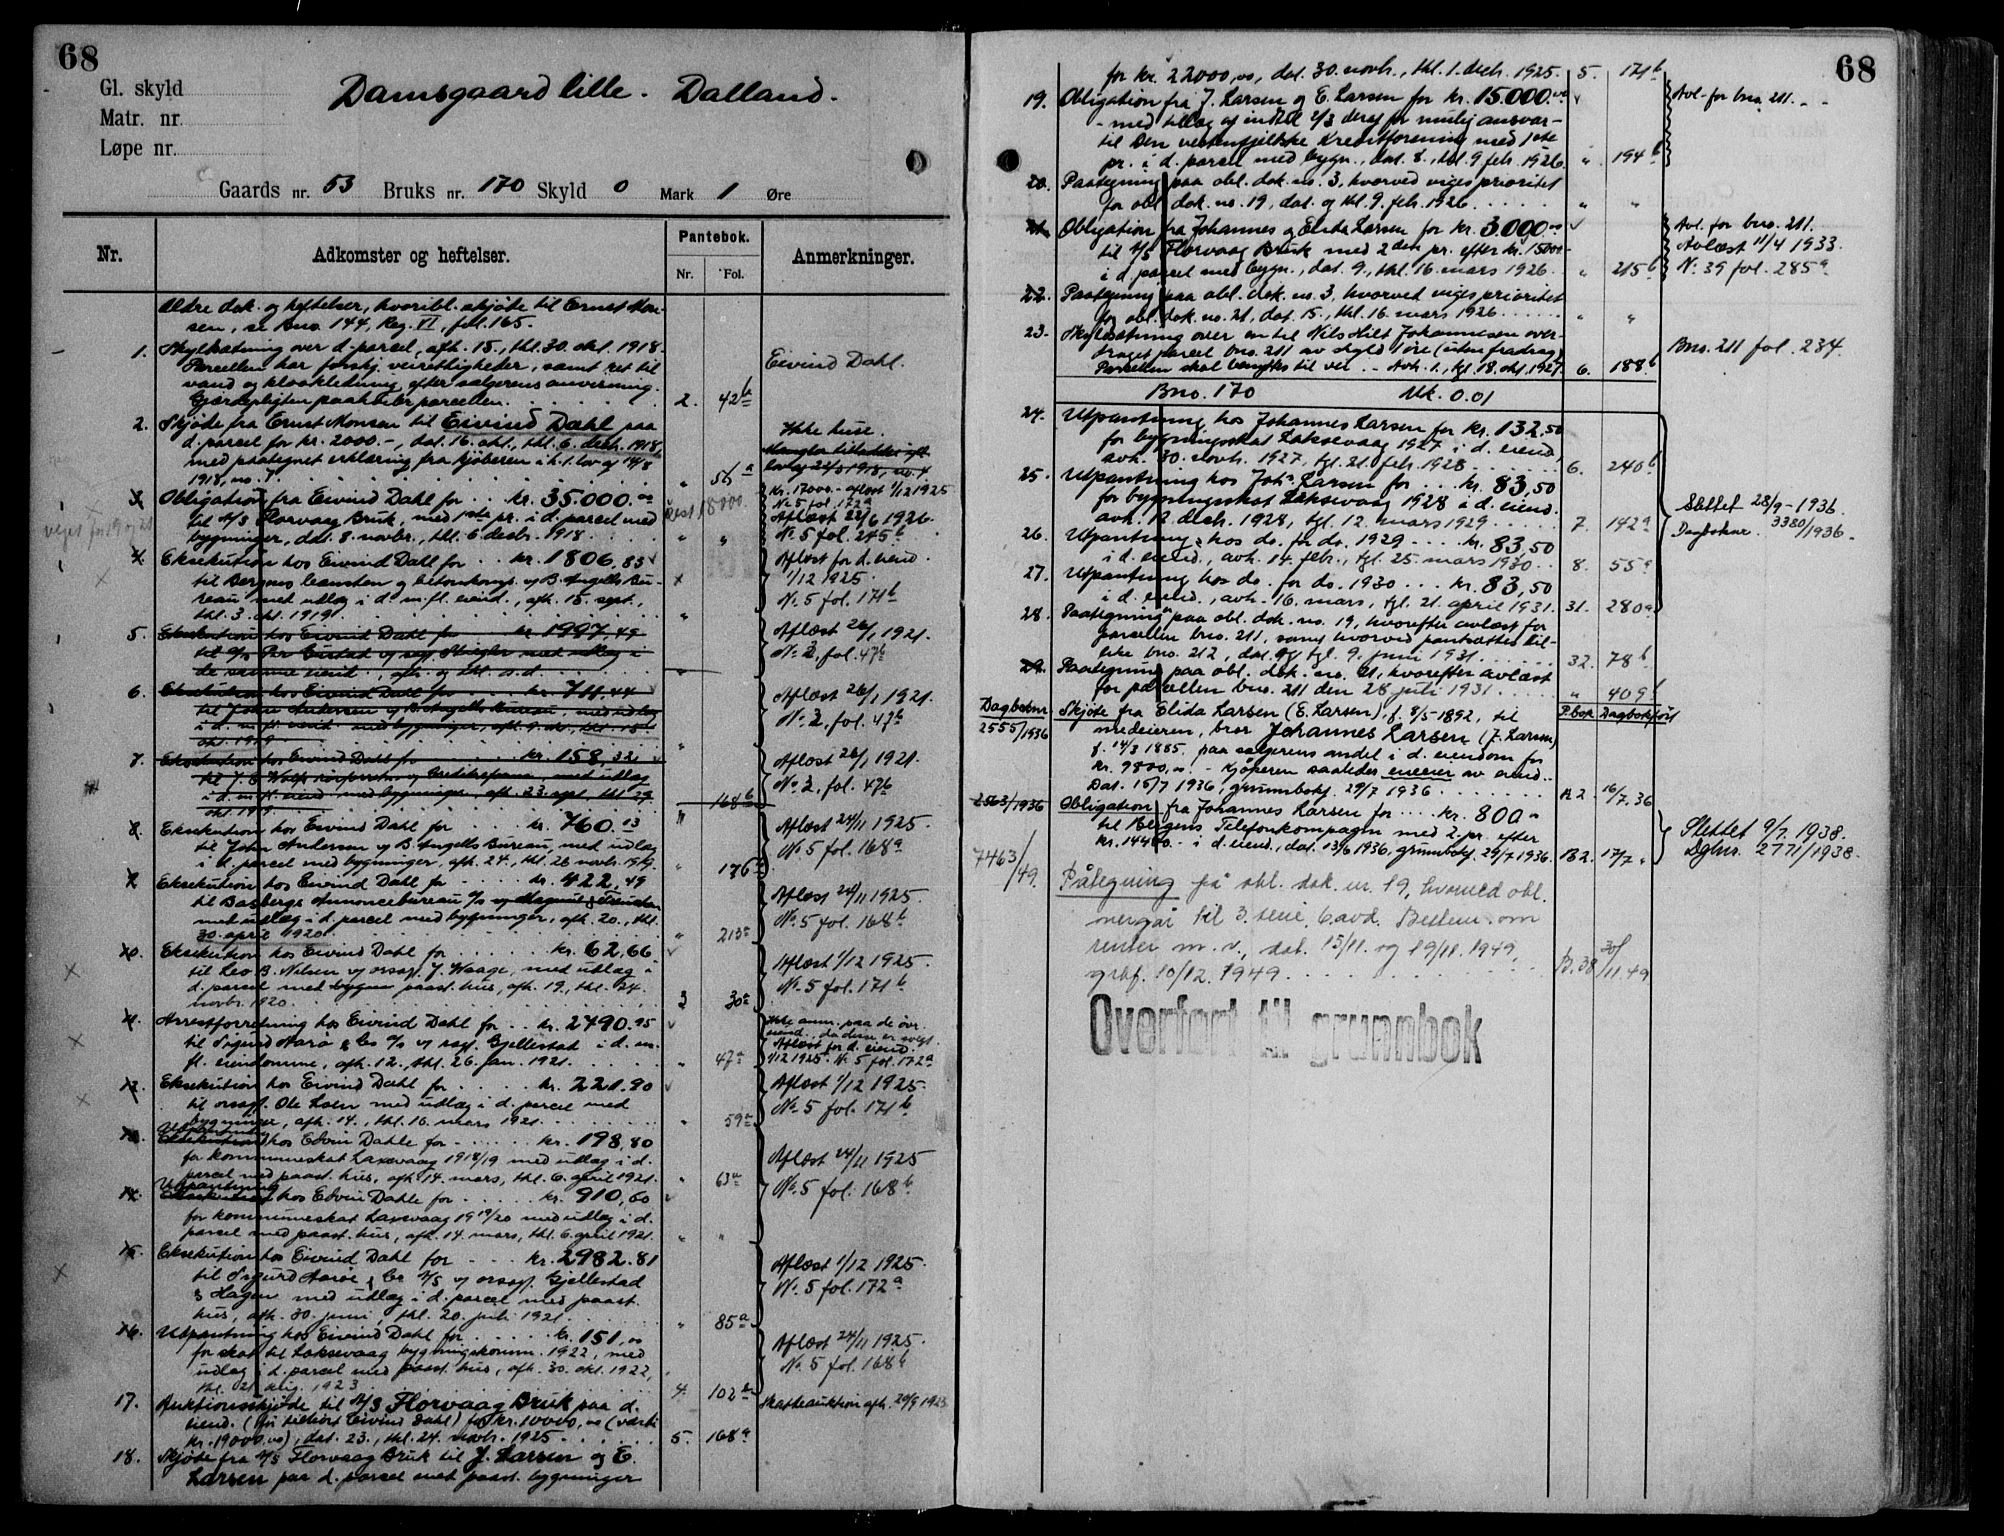 68
Gl. skyld
Matr. nr.
Løpe nr.
Damsgaard lille. Dalland.
Gaards nr. 53 Bruks nr. 170 Skyld 0 Mark 1 Øre
Nr. Adkomster og heftelser. Pantebok. Nr. Fol. Anmerkninger.
Ældre dok. og heftelser, hvoribl. skjøte til Ernst Mon-
sen, se Bno. 144, Reg. VI, fol. 165.
1. Skyldsætning over d. parcel, afh. 15., thl. 30. okt. 1918.
Parcellen har forskj. veirettigheder, samt ret til
vand og kloakledning efter sælgerens anvisning.
Gjærdepligten paahviler parcellen. 2. 42b
Eivind Dahl.
2. Skjøde fra Ernst Monsen til Eivind Dahl paa
d. parcel for kr. 2000.-, dat. 16. okt., thl. 6. decb. 1918,
med paategnet erklæring fra kjøberen i h. t. lov af 14/8
1918, no. 7. " 55a
Ikke huse.
3. Obligation fra Eivind Dahl for kr. 35.000.00
til A/S Florvaag Bruk, med 1ste pr. i d. parcel med
bygninger, dat. 8. novbr., thl. 6. decb. 1918. " "
Rest 18000.
Kr. 17000.- aflæst 1/12 1925
No. 5 fol. 172a
Aflæst 22/6 1926.
No. 5 fol. 245b
viget for 19 og 21
4. Eksekution hos Eivind Dahl for kr. 1806,83
til Bergens Cementen og betonkomp. v/ B. Angells Bu-
reau med udlæg i d. m. fl. eiend., afh. 15. sept.,
thl. 3. okt. 1919. "
Aflæst for d. eiend.
1/12 1925.
No. 5 fol. 171b
5. Eksekution hos Eivind Dahl for kr. 1997,49
de samme eiend., afh. og thl. s.d. "
Aflæst 26/1 1921.
No. 2, fol. 47b
6. Eksekution hos Eivind Dahl for kr. 711,44
til John Andersen v/ B. Angells Bureau, med udlæg
i d. m. fl. eiend. med bygninger, afh. 9. do., thl. 15.
okt. 1919 "
Aflæst 26/1 1921.
No. 2, fol. 47b
7. Eksekution hos Eivind Dahl for kr. 158,32
i d. m. fl. eiend. med bygninger, afh. 23. sept., thl. 29.
okt. 1919 168b
Aflæst 26/1 1921.
No. 2, fol. 47b
8. Eksekution hos Eivind Dahl for kr. 760.13
til John Andersen v/ B. Angells Bureau, med udlæg
i d. parcel med bygninger, afh. 24., thl. 28. novbr. 1919. " 176
Aflæst 24/11 1925.
No. 5 fol. 168a
9. Eksekution hos Eivind Dahl for kr. 422,49
til Basbergs Annoncebureau A/S
med udlæg i d. parcel med bygninger, afh. 20., thl.
30. april 1920. " 213a
Aflæst 24/11 1925.
No. 5 fol. 168b
10. Eksekution hos Eivind Dahl for kr. 62,66
til Leo B. Nilsen v/ orsagf. J. Waage, med udlæg i
d. parcel med bygn. paast. hus, afh. 19., thl. 24.
novbr. 1920. 3 30a
Aflæst 1/12 1925.
No. 5 fol. 171b
11. Arrestforretning hos Eivind Dahl for kr. 2790.95
til Sigurd Aarø & Co A/S v/ sagf. Gjellestad i d. m.
fl. eiendomme, afh. 12., thl. 26. jan. 1921. " 47a
Ikke anm. paa de øvr.
eiend., da disse er solgt.
Aflæst for d. eiend.
1/12 1925. No. 5 fol. 172a
12. Eksekution hos Eivind Dahl for kr. 221.90
til orsagf. Ole Loen med udlæg i d. parcel med
bygninger, afh. 14., thl. 16. mars 1921. " 59a
Aflæst 1/12 1925.
No. 5 fol. 171b
Utpantning
13. Eksekution hos Edvin Dahle for kr. 198,80
for kommuneskat Laxevaag 1918/19 med udlæg i d.
parcel med paast. hus, afh. 14. mars, thl. 6. april 1921. " 63a
Utpantning
14. Eksekution hos Edvin Dahle for kr. 910,60
for kommuneskat Laxevaag 1919/20 med udlæg i d.
parcel med paast. hus, afh. 14. mars, thl. 6. april 1921. " "
Aflæst 24/11 1925
No. 5 fol. 168b
15. Eksekution hos Eivind Dahl for kr. 2982.81
til Sigurd Aarøe & Co A/S v/ orsagf. Gjellestad
& Hagen med udlæg i d. parcel med paast.
hus, afh. 30. juni, thl. 20. juli 1921. " 85a
Aflæst 1/12 1925.
No. 5 fol. 172a
16. Utpantning hos Eivind Dahl for kr. 151,00
for skat til Laksevaag bygningskomm. 1922, med
udlæg i d. parcel med paast. hus, afh. 30. okt. 1922,
thl. 21. aug. 1923. 4. 102
Aflæst 24/11 1925.
No. 5 fol. 168b
17. Auktionsskjøde til A/S Florvaag Bruk paa d.
eiend. (før tilhørt Eivind Dahl) for kr. 10000,00 (værdi
kr. 19000.00), dat. 23., thl. 24. novb. 1925. 5. 168a
Skatteauktion afh. 29/9 1925
18. Skjøte fra A/S Florvaag Bruk til J. Larsen og E.
Larsen paa d. parcel med paast. bygninger
68
for kr. 22000,00, dat. 30. novb., thl. 1. decb. 1925. 5. 171b
19. Obligation fra J. Larsen og E. Larsen for kr. 15.000.00
- med tillæg af indtil 2/3 deraf for mulig ansvar -
til Den vestenfjeldske Kreditforening med 1ste
pr. i d. parcel med bygn., dat. 8., thl. 9. feb. 1926. " 194b
Avl. for bno. 211.
20. Paategning paa obl. dok. no. 3, hvorved viges prioritet
for obl. dok. no. 19, dat. og thl. 9. feb. 1926. " "
21. Obligation fra Johannes og Elida Larsen for kr. 3.000.00
til A/S Florvaag Bruk med 2den pr. efter kr. 15000.-
i d. parcel med bygn., dat. 9., thl. 16. mars 1926. " 215b
Avl. for bno. 211.
Avlæst 11/4 1933.
No. 39 fol. 285a
22. Paategning paa obl. dok. no. 3, hvorved viges prioritet
for obl. dok. no. 21, dat. 15., thl. 16. mars 1926. " "
23. Skyldsætning over en til Nils Hilt Johannesen over-
draget parcel bno. 211 av skyld 1 øre (uten fradrag)
Parcellen skal benyttes til vei. - Avh. 1., tgl. 18. okt. 1927. 6. 188b
Bno. 211 fol. 234.
Bno. 170 Mk. 0.01
24. Utpantning hos Johannes Larsen for kr. 132,50
for bygningsskat Laksevaag 1927 i d. eiend.,
avh. 30. novb. 1927, tgl. 21. feb. 1928. 6. 240b
25. Utpantning hos Johs. Larsen for kr. 83,50
for bygningsskat Laksevaag 1928 i d. eiend.
avh. 12. decb. 1928, tgl. 12. mars 1929. 7. 142a
26. Utpantning hos do. for do. 1929 kr. 83,50
i d. eiend., avh. 14. feb., tgl. 25. mars 1930. 8. 55a
27. Utpantning hos do. for do. 1930 kr. 83,50
i d. eiend., avh. 16. mars, tgl. 21. april 1931. 31. 280a
Slettet 28/9 - 1936.
Dagboknr. 3380/1936.
28. Paategning paa obl. dok. no. 19, hvorefter avlæst for
parcellen bno. 211, samt hvorved pantsættes til-
like bno. 212, dat. og tgl. 9. juni 1931. 32. 78b
29. Paategning paa obl. dok. no. 21, hvorefter avlæst
for parcellen bno. 211 den 28 juli 1931. " 409b
Dagboknr. P.bok Dagbokført
2555/1936 Skjøte fra Elida Larsen (E. Larsen), f. 8/5-1892, til
medeieren, bror Johannes Larsen (J. Larsen)
f. 14/3 1885, paa sælgerens andel i d. eiendom for
kr. 9800,00. - Kjøperen saaledes eneeier av eiend.
Dat. 15/7 1936, grunnbokf. 29/7 1936. B 2. 16/7.36
2563/1936 Obligation fra Johannes Larsen for kr. 800.00
til Bergens Telefonkompagni med 2. pr. efter
kr. 14400.- i d. eiend., dat. 13/6 1936, grunnbokf. 29/7 1936. B 2. 17/7 "
Slettet 9/7. 1938.
Dgbnr. 2771/1938.
7463/49. Påtegning på obl. dok. nr. 19, hvorved obl.
overgår til 3. serie, 6. avd. Bestem. om
renter m. v., dat. 15/11. og 19/11. 1949,
grbf. 10/12. 1949. B. 38 30/11.49
Overført til grunnbok